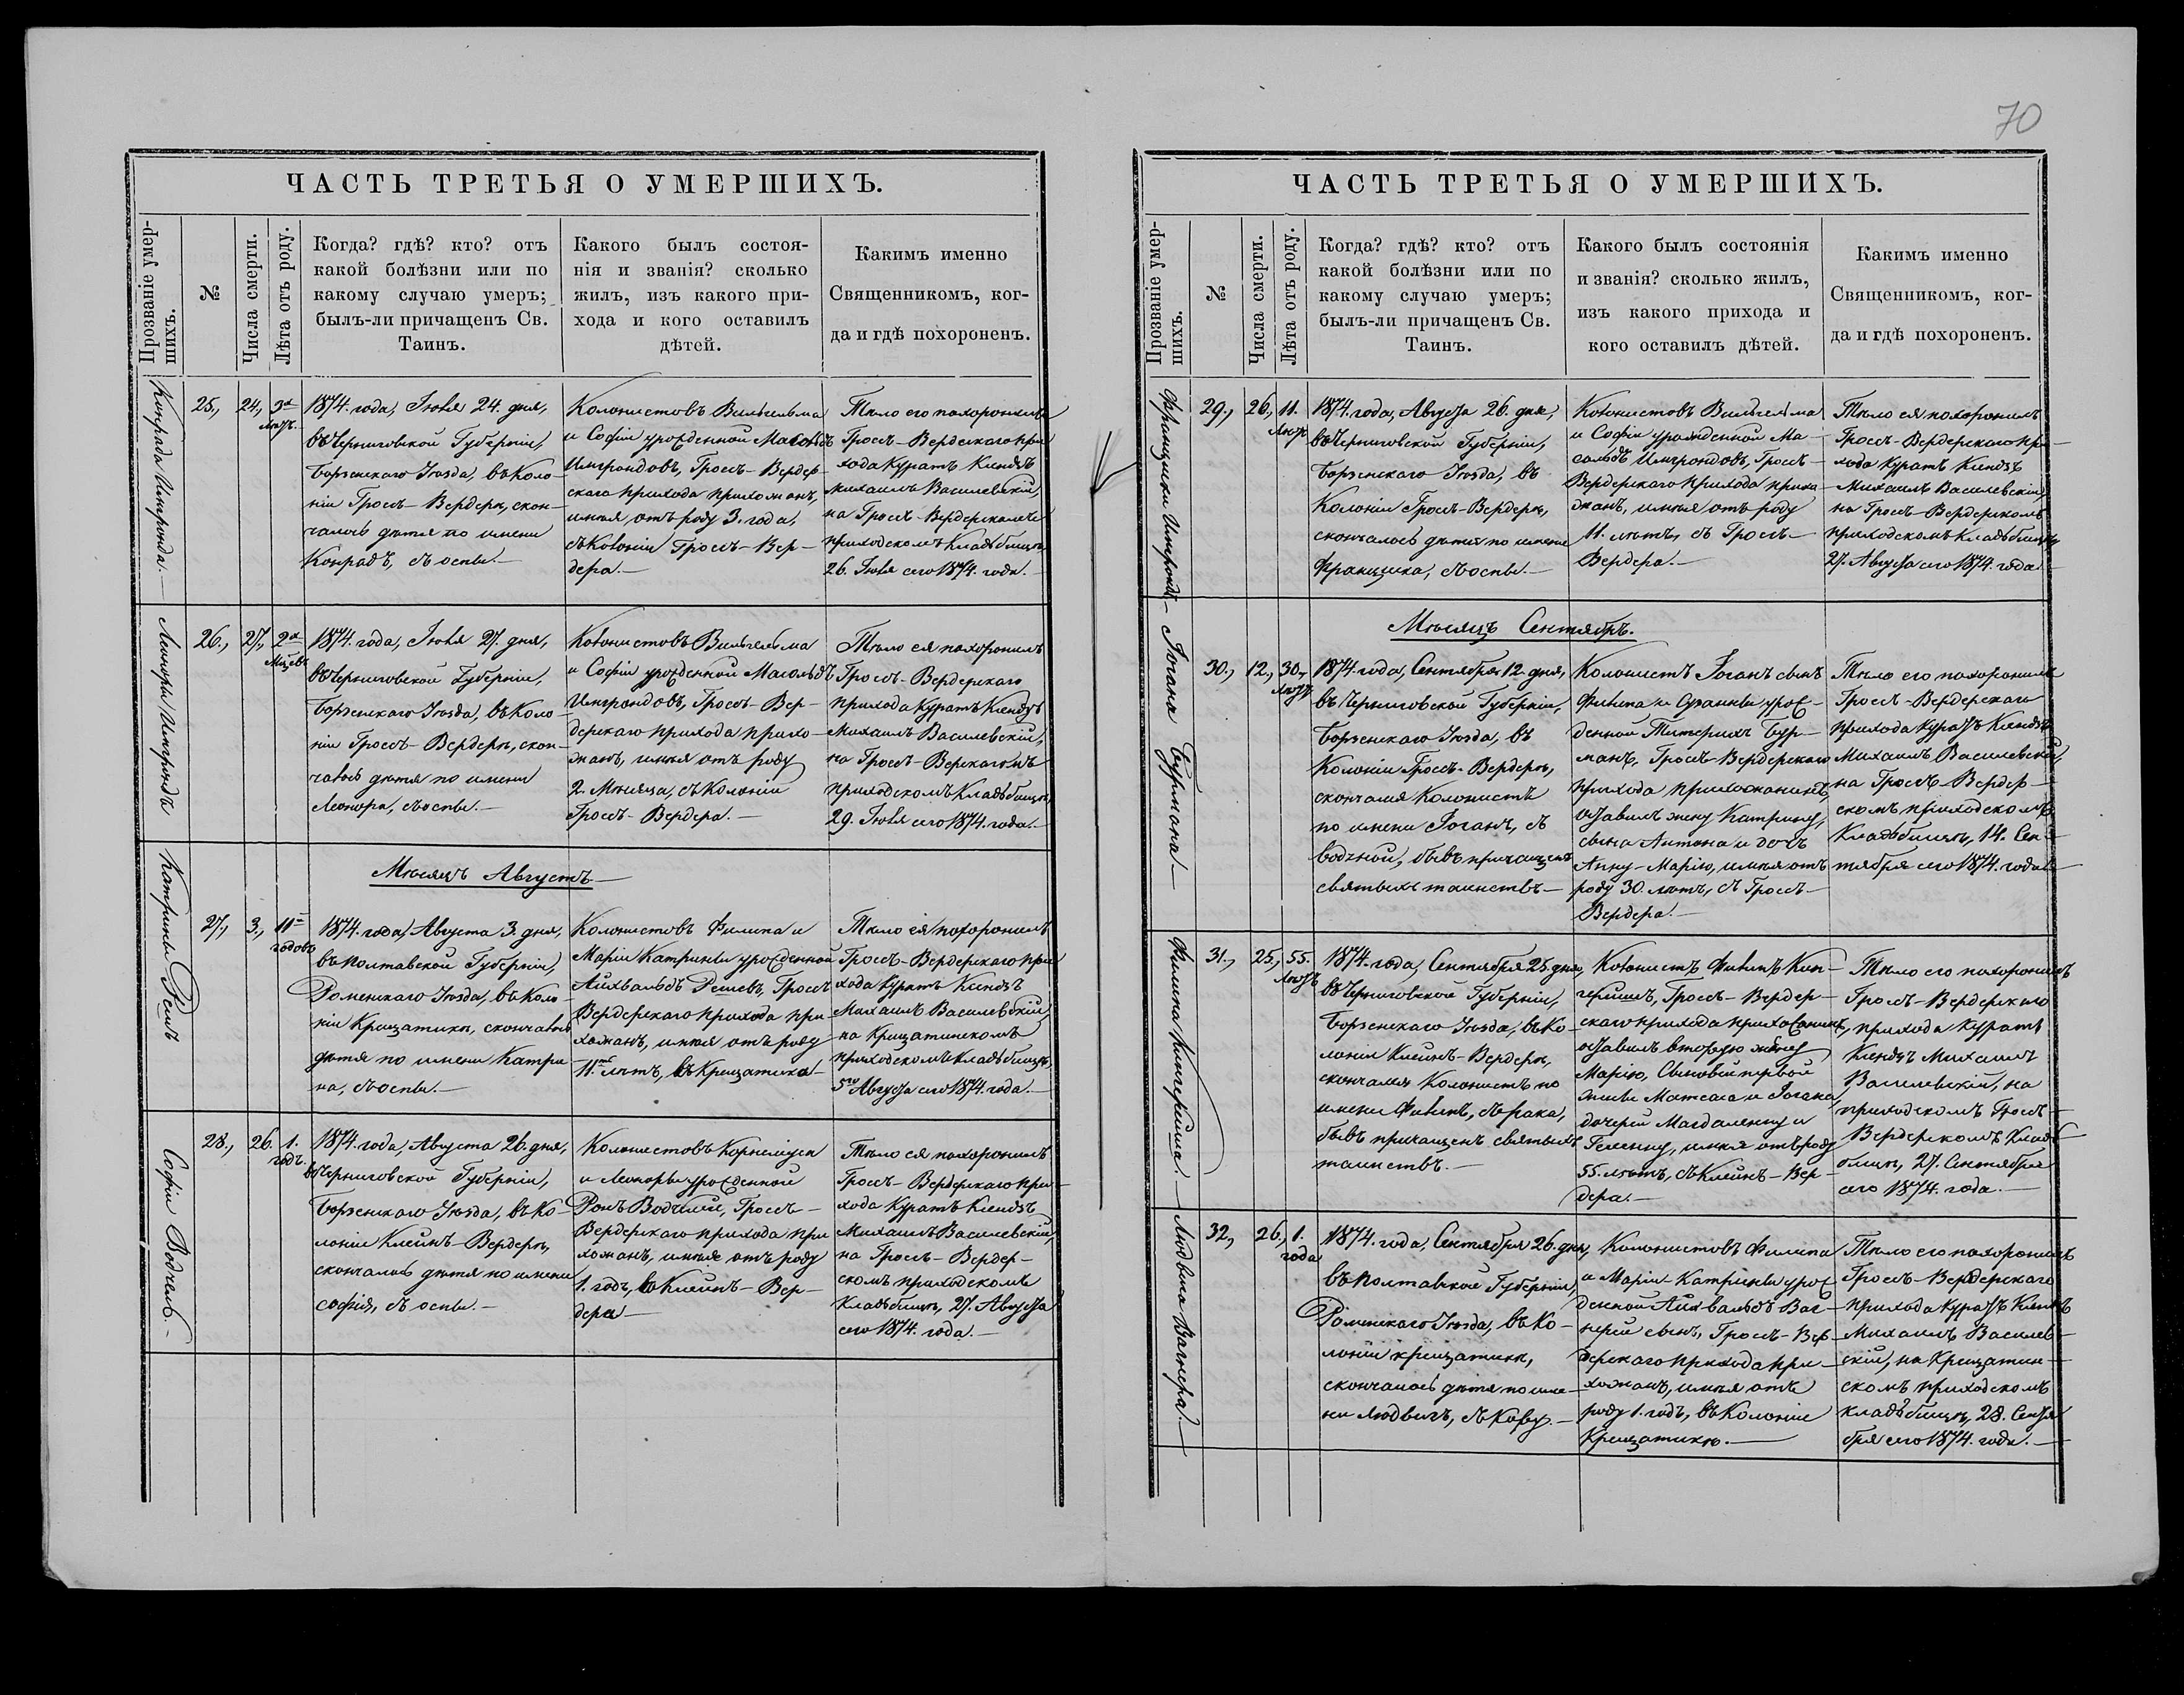 70
ЧАСТЬ ТРЕТЬЯ О УМЕРШИХЪ.
Прозваніе умер-
шихъ.
№
Числа смерти.
Лѣта отъ роду.
Когда? гдѣ? кто? отъ
какой болѣзни или по
какому случаю умеръ;
былъ-ли причащенъ Св.
Таинъ.
Какого былъ состоя-
нія и званія? сколько
жилъ, изъ какого при-
хода и кого оставилъ
дѣтей.
Какимъ именно
Священникомъ, ког-
да и гдѣ похороненъ.
Конрада Имгронда.—
25., 24., 3х
лѣтъ.
1874. года, Іюля 24. дня,
въ Черниговской Губерніи,
Борзенскаго Уѣзда, въ Коло-
ніи Гросъ-Вердерѣ, скон-
чалось дѣтя по имени
Конрадъ, съ оспы.—
Колонистовъ Вильгельма
и Софіи урожденной Масольдъ
Имгрондовъ, Гросъ-Вердер-
скаго прихода прихожанъ,
имѣя отъ роду 3. года,
съ Колоніи Гросъ-Вер-
дера.—
Тѣло его похоронилъ
Гросъ-Вердерскаго при
хода Куратъ Ксендзъ
Михаилъ Василевскій,
на Гросъ-Вердерскомъ
приходскомъ Кладъбищѣ,
26. Іюля сего 1874. года.—
Леоноры Имгрондъ
26., 27., 2х
Мѣсяцевъ
1874. года, Іюля 27. дня,
въ Черниговской Губерніи,
Борзенскаго Уѣзда, въ Коло-
ніи Гросъ-Вердерѣ, скон-
чалось дѣтя по имени
Леонора, съ оспы.—
Колонистовъ Вильгельма
и Софіи урожденной Масольдъ
Имгрондовъ, Гросъ-Вер-
дерскаго прихода прихо-
жанъ, имѣя отъ роду
2. Мѣсяца, съ Колоніи
Гросъ-Вердера.—
Тѣло ея похоронилъ
Гросъ-Вердерскаго
прихода Куратъ Ксендзъ
Михаилъ Василевскій,
на Гросъ-Верскагомъ
приходскомъ Кладъбищѣ,
29. Іюля сего 1874. года.—
Мѣсяцъ Августъ—
Катрины Решъ
27., 3., 11
годовъ
1874. года, Августа 3. дня,
въ Полтавской Губерніи,
Роменскаго Уѣзда, въ Коло-
ніи Крещатикѣ, скончалось
дѣтя по имени Катри
на, съ оспы.—
Колонистовъ Филипа и
Маріи Катрины урожденной
Айхвальдъ Решевъ, Гросъ
Вердерскаго прихода при-
хожанъ, имѣя отъ роду
11. лѣтъ, въ Крещатика—
Тѣло ея похоронилъ
Гросъ-Вердерскаго при
хода Куратъ Ксендзъ
Михаилъ Василевскій,
на Крещатинскомъ
приходскомъ Кладъбищѣ,
5го Августа сего 1874. года.—
Софіи Водчель.—
28., 26. 1.
годъ.
1874. года, Августа 26. дня,
въ Черниговской Губерніи,
Борзенскаго Уѣзда, въ Ко-
лоніи Клейнъ-Вердерѣ,
скончалось дѣтя по имени
Софія, съ оспы.—
Колонистовъ Корнелиуса
и Леоноры урожденной
Гросъ—
Вердерскаго прихода при
хожанъ, имѣя отъ роду
1. годъ, въ Клейнъ-Вер-
дера—
Тѣло ея похоронилъ
Гросъ-Вердерскаго при-
хода Куратъ Ксендзъ
Михаилъ Василевскій,
на Гросъ-Вердер-
скомъ приходскомъ
Кладъбищѣ, 27. Августа
сего 1874. года.—
ЧАСТЬ ТРЕТЬЯ О УМЕРШИХЪ.
Прозваніе умер-
шихъ.
№
Числа смерти.
Лѣта отъ роду.
Когда? гдѣ? кто? отъ
какой болѣзни или по
какому случаю умеръ;
былъ-ли причащенъ Св.
Таинъ.
Какого былъ состоянія
и званія? сколько жилъ,
изъ какого прихода и
кого оставилъ дѣтей.
Какимъ именно
Священникомъ, ког-
да и гдѣ похороненъ.
Францишки Имгрондъ—
29., 26., 11.
лѣтъ
1874. года, Августа 26. дня,
въ Черниговской Губерніи,
Борзенскаго Уѣзда, въ
Колоніи Гросъ-Вердерѣ,
скончалось дѣтя по имени
Франциска, съ оспы.—
Колонистовъ Вильгельма
и Софіи урожденной Ма-
сольдъ Имгрондовъ, Гросъ-
Вердерскаго прихода прихо-
жанъ, имѣя отъ роду
11. лѣтъ, съ Гросъ-
Вердера.—
Тѣло ея похоронилъ
Гросъ-Вердерскаго при-
хода Куратъ Ксендзъ
Михаилъ Василевскій,
на Гросъ-Вердерскомъ
приходскомъ Кладъбищѣ,
27. Августа сего 1874. года.
Мѣсяцъ Сентябрь.
Іогана Бурмана—
30., 12., 30.,
лѣтъ
1874. года, Сентября 12. дня,
въ Черниговской Губерніи,
Борзенскаго Уѣзда, въ
Колоніи Гросъ-Вердерѣ,
скончался Колонистъ
по имени Іоганъ, съ
водяной, бывъ причащенъ
святыхъ таинствъ—
Колонистъ Іоганъ сынъ
Филипа и Сузанны урож-
денной Бур-
манъ, Гросъ-Вердерскаго
прихода прихожанинъ,
оставилъ жену Катрину,
сына Антона и дочь
Анну-Марію, имѣя отъ
роду 30. лѣтъ, съ Гросъ-
Вердера.—
Тѣло его похоронилъ
Гросъ-Вердерскаго
прихода Куратъ Ксендзъ
Михаилъ Василевскій,
на Гросъ-Вердер-
скомъ приходскомъ
Кладъбищѣ, 14. Сен-
тября сего 1874. года—
Филипа Кингериша.—
31., 25., 55.
лѣтъ
1874. года, Сентября 25. дня,
въ Черниговской Губерніи,
Борзенскаго Уѣзда, въ Ко-
лоніи Клейнъ-Вердерѣ,
скончался Колонистъ по
имени Филипъ, съ рака,
бывъ причащенъ святыхъ
таинствъ.—
Колонистъ Филипъ Кин-
геришъ, Гросъ-Вердер-
скаго прихода прихожанинъ,
оставилъ вторую жену
Марію, Сыновей первой
жены Матеаса и Іогана,
дочерей Магдаленну и
Геленну, имѣя отъ роду
55. лѣтъ, съ Клейнъ-Вер-
дера.—
Тѣло его похоронилъ
Гросъ-Вердерскаго
прихода Куратъ
Ксендзъ Михаилъ
Василевскій, на
приходскомъ Гросъ-
Вердерскомъ Кладъ
бищѣ, 27. Сентября
сего 1874. года.—
Людвига Вагнера.—
32., 26., 1.
года
1874. года, Сентября 26. дня,
въ Полтавской Губерніи,
Роменскаго Уѣзда, въ Ко-
лоніи Крещатикѣ,
скончалось дѣтя по име-
ни Людвигъ, съ Кору.—
Колонистовъ Филипа
и Маріи-Катрины урож
денной Айхвальдъ Ваг-
нерей сынъ, Гросъ-Вер-
дерскаго прихода при-
хожанъ, имѣя отъ
роду 1. годъ, въ Колоніи
Крещатикю.—
Тѣло его похоронилъ
Гросъ-Вердерскаго
прихода Куратъ Ксендзъ
Михаилъ Василев-
скій, на Крещатин-
скомъ приходскомъ
кладъбищѣ, 28. Сентя
бря сего 1874. года.—